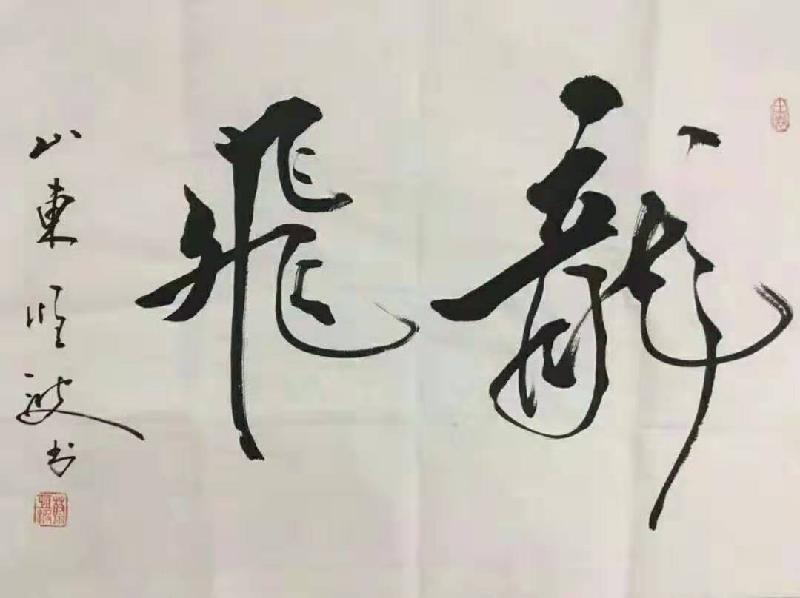 龍飛
山東恒波书